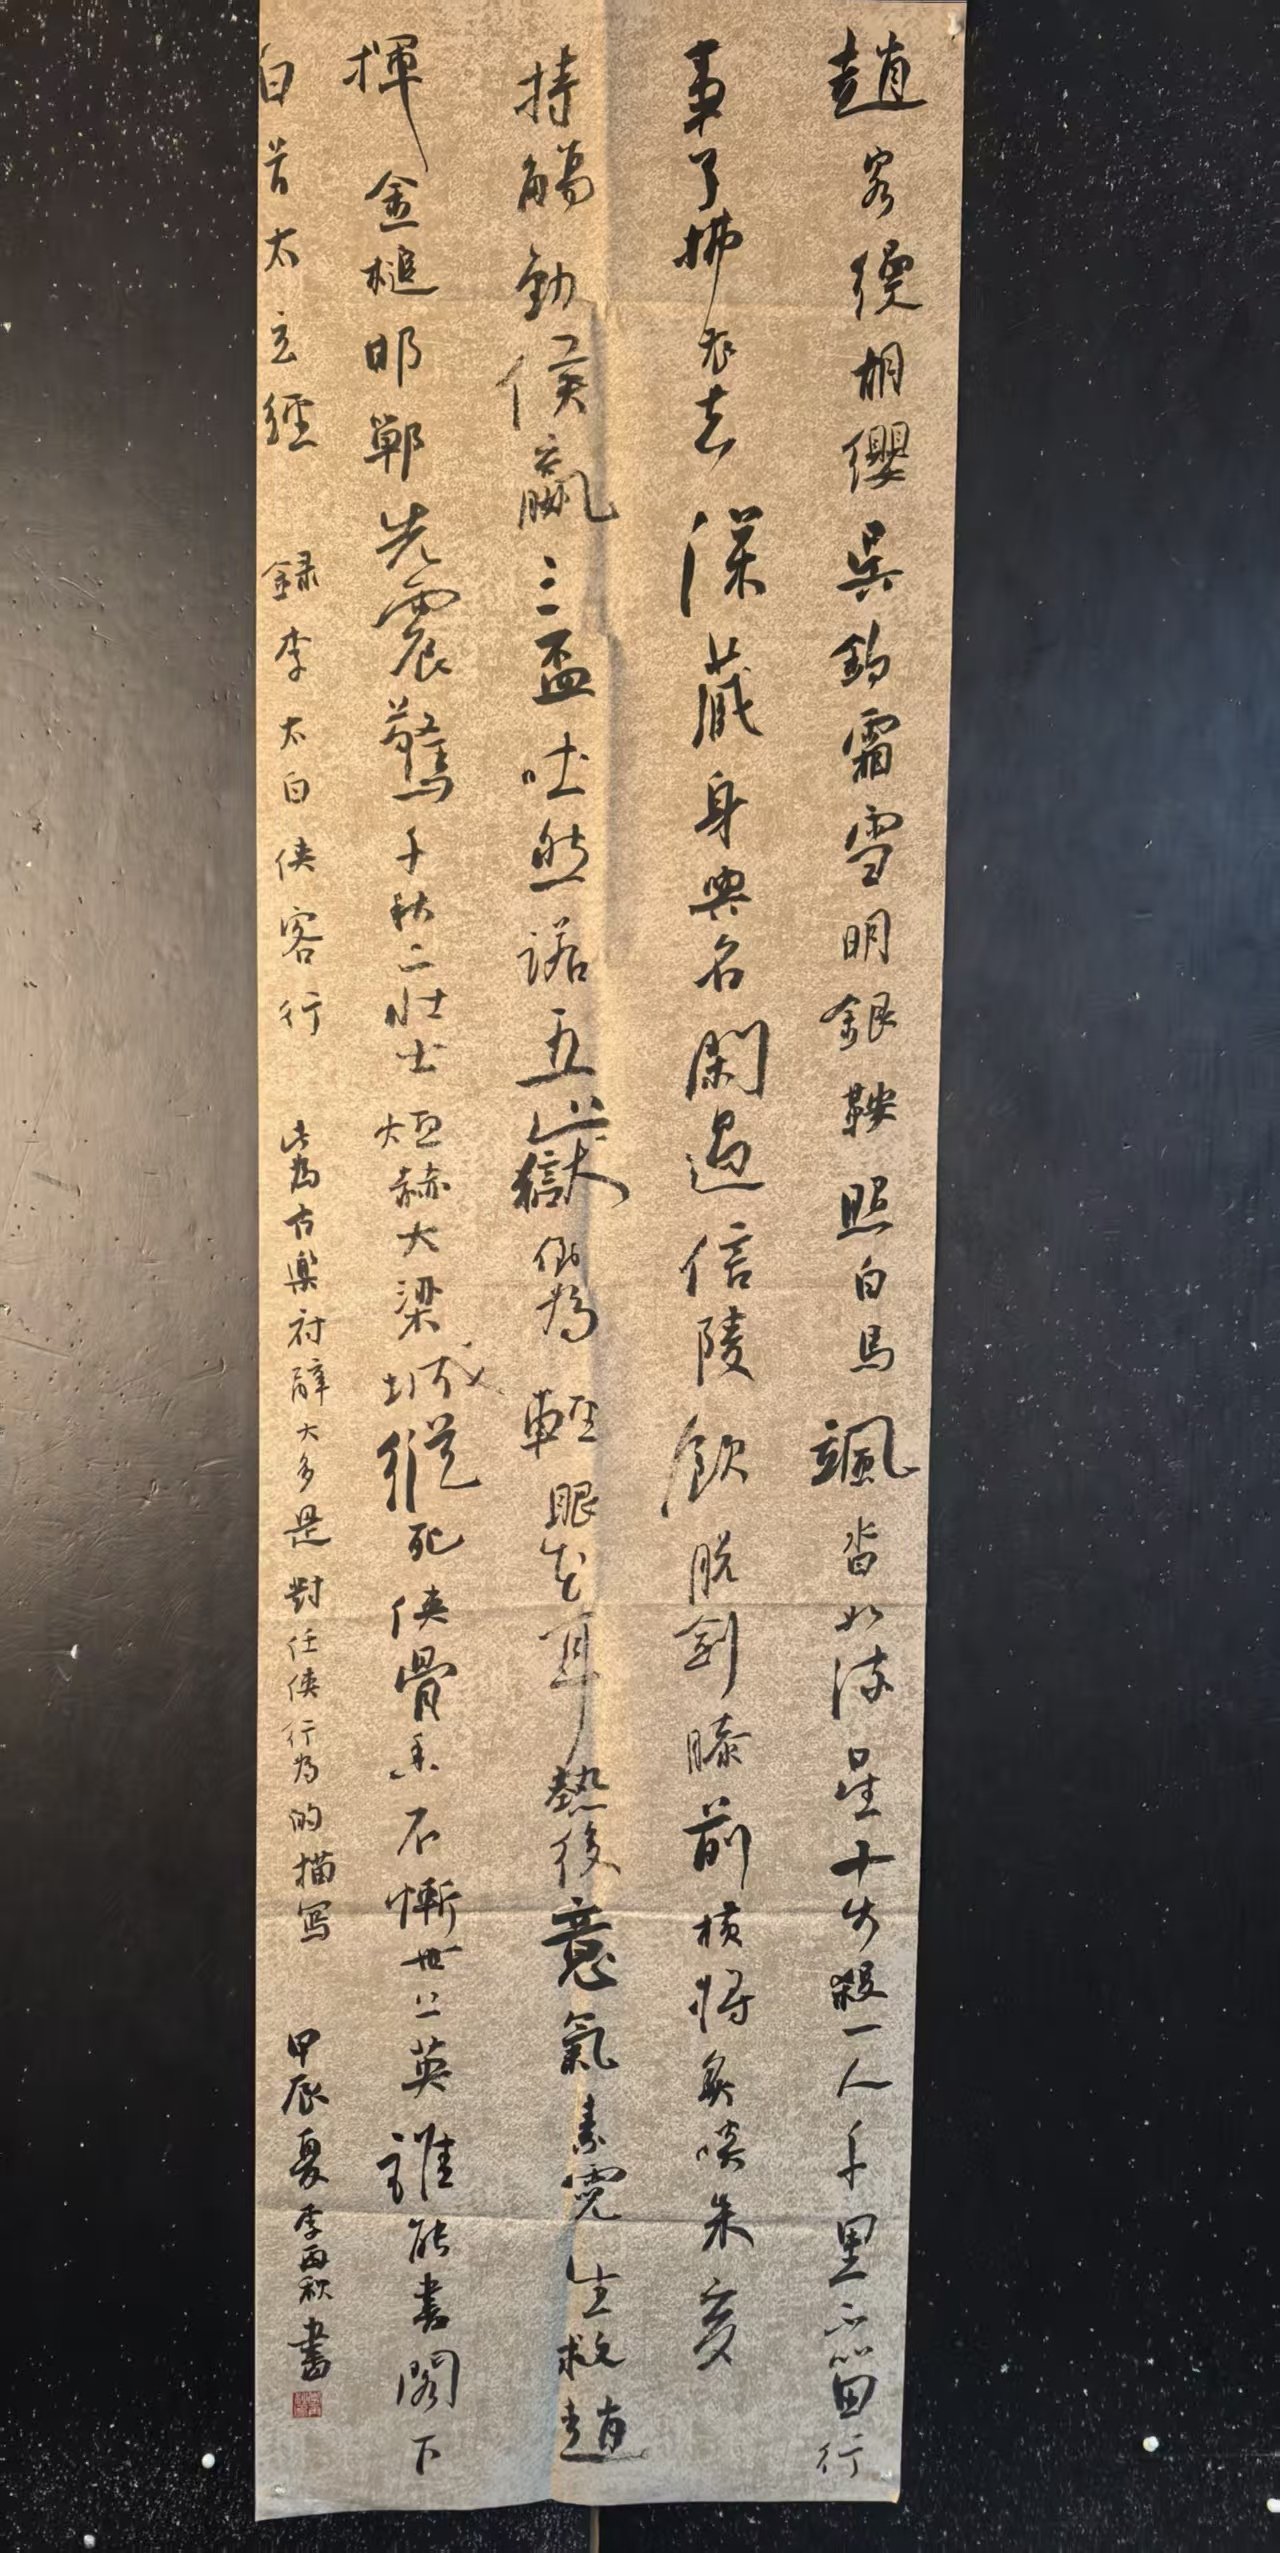 趙客縵胡纓吳鈎霜雪明銀鞍照白馬颯沓如流星十步殺一人千里不留行
事了拂衣去深藏身與名閑過信陵飲脫劍膝前橫將炙啖朱亥
持觴勸侯嬴三盃吐然諾五嶽倒為輕眼花耳熱後意氣素霓生救趙
揮金槌邯鄲先震驚千秋二壯士烜赫大梁城縱死俠骨香不慚世上英誰能書閣下
白首太玄經 録李太白俠客行 此為古樂府辭大多是對任俠行為的描寫 甲辰夏李西秋書